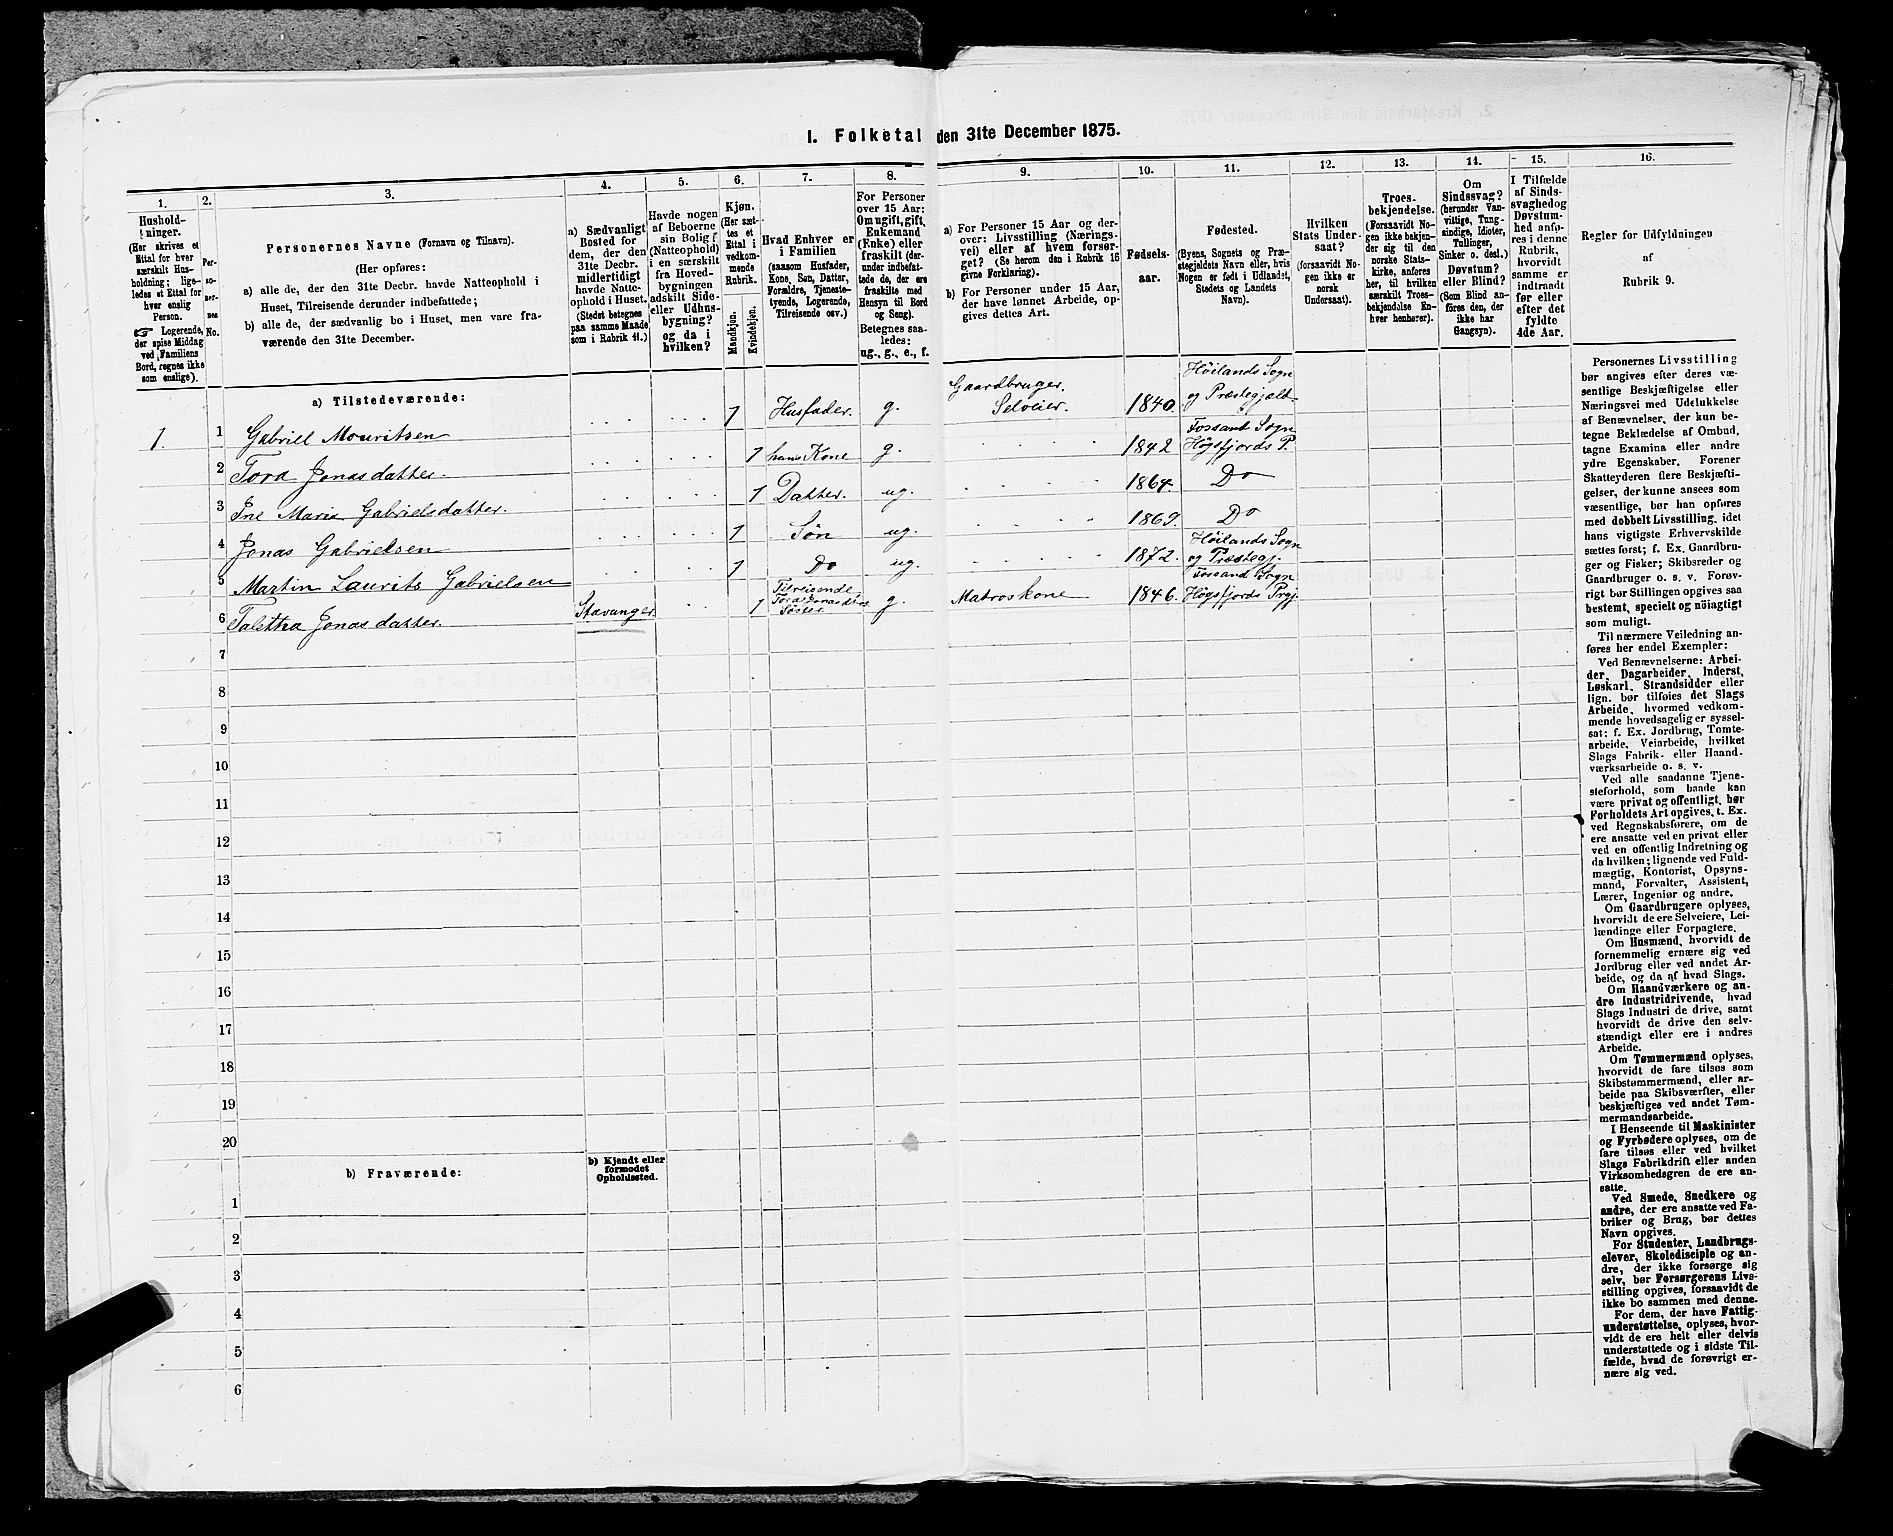 I. Folketal den 31te December 1875.
1.
Hushold-
ninger.
(Her skrives et
Ettal for hver
særskilt Hus-
holdning; lige-
ledes et Ettal for
hver enslig
Person.
☞ Logerende,
der spise Middag
ved Familiens
Bord, regnes ikke
som enslige).
2.
Per-
so-
ner-
nes
No.
3.
Personernes Navne (Fornavn og Tilnavn).
(Her opføres:
a) alle de, der den 31te Decbr. havde Natteophold i
Huset, Tilreisende derunder indbefattede;
b) alle de, der sædvanlig bo i Huset, men vare fra-
værende den 31te December.
4.
a) Sædvanligt
Bosted for
dem, der den
31te Decbr.
midlertidigt
havde Natte-
ophold i Huset.
(Stedet betegnes
paa samme Maade
som i Rubrik 11.)
5.
Havde nogen
af Beboerne
sin Bolig
(Natteophold)
i en særskilt
fra Hoved-
bygningen
adskilt Side-
eller Udhus-
bygning?
og da i
hvilken?
6.
Kjøn.
(Her sæt-
tes et
Ettal i
vedkom-
mende
Rubrik.
Mandkjøn.
Kvindekjøn.
7.
Hvad Enhver er
i Familien
(saasom Husfader,
Kone, Søn, Datter,
Forældre, Tjeneste-
tyende, Logerende,
Tilreisende osv.)
8.
For Personer
over 15 Aar:
Om ugift, gift,
Enkemand
(Enke) eller
fraskilt (der-
under indbefat-
tede de, der ere
fraskilte med
Hensyn til Bord
og Seng).
Betegnes saa-
ledes:
ug., g., e., f.
9.
a) For Personer 15 Aar og der-
over: Livsstilling (Nærings-
vei) eller af hvem forsør-
get? (Se herom den i Rubrik 16
givne Forklaring).
b) For Personer under 15 Aar,
der have lønnet Arbeide, op-
gives dettes Art.
10.
Fødsels-
aar.
11.
Fødested.
(Byens, Sognets og Præ-
stegjeldets Navn eller, hvis
Nogen er født i Udlandet,
Stedets og Landets
Navn).
12.
Hvilken
Stats Under-
saat?
(forsaavidt No-
gen ikke er
norsk
Undersaat).
13.
Troes-
bekjendelse.
(Forsaavidt No-
gen ikke bekjen-
der sig til den
norske Stats-
kirke, anføres
her, til hvilken
særskilt Troes-
bekjendelse En-
hver henhører).
14.
Om
Sindssvag?
(herunder Van-
vittige, Tung-
sindige, Idioter,
Tullinger,
Sinker o. desl.)
Døvstum?
eller Blind?
(Som Blind an-
føres den, der
ikke har
Gangsyn).
15.
I Tilfælde
af Sinds-
svaghed og
Døvstum-
hed anfø-
res i denne
Rubrik,
hvorvidt
samme er
indtraadt
før eller
efter det
fyldte
4de Aar.
16.
Regler for Udfyldningen
af
Rubrik 9.
a) Tilstedeværende:
1. 1 Gabriell Mouritsen 1 Husfader. g. Gaardbruger. Selveier. 1840 Höilands Sogn og Præstegjeld
2 Tora Jonasdatter. 1 hans Kone g. 1842 Fossant Sogn Högsfjords P.
3 Ine Marie Gabrielsdatter. 1 Datter. ug. 1864. Do
4 Jonas Gabrielsen 1 Søn ug. 1869. Do
5 Martin Laurits Gabrielsen 1 Do ug. 1872. Höilands Sogn og Præstegj.
6 Taletha Jonasdatter. Stavanger. 1 Tilreisende Tora Jonasdtrs Søster. g. Matroskone 1846. Fossand Sogn Högsfjords Prgj.
7
8
9
10
11
12
13
14
15
16
17
18
19
20
b) Fraværende:
b) Kjendt eller
formodet
Opholdssted.
1
2
3
4
5
6
Personernes Livsstilling
bør angives efter deres væ-
sentlige Beskjæftigelse eller
Næringsvei med Udelukkelse
af Benævnelser, der kun be-
tegne Beklædelse af Ombud,
tagne Examina eller andre
ydre Egenskaber. Forener
Skatteyderen flere Beskjæfti-
gelser, der kunne ansees som
væsentlige, bør han opføres
med dobbelt Livsstilling, idet
hans vigtigste Erhvervskilde
sættes først; f. Ex. Gaardbru-
ger og Fisker; Skibsreder og
Gaardbruger o. s. v. Forøv-
rigt bør Stillingen opgives saa
bestemt, specielt og nöiagtigt
som muligt.
Til nærmere Veiledning an-
føres her endel Exempler:
Ved Benævnelserne: Arbei-
der, Dagarbeider, Inderst,
Løskarl, Strandsidder eller
lign. bør tilføies det Slags
Arbeide, hvormed vedkom-
mende hovedsagelig er syssel-
sat; f. Ex. Jordbrug, Tomte-
arbeide, Veiarbeide, hvilket
Slags Fabrik- eller Haand-
værksarbeide o. s. v.
Ved alle saadanne Tjene-
steforhold, som baade kan
være privat og offentligt, bør
Forholdets Art opgives, t. Ex.
ved Regnskabsførere, om de
ere ansatte ved en privat eller
ved en offentlig Indretning og
da hvilken; lignende ved Fuld-
mægtig, Kontorist, Opsyns-
mand, Forvalter, Assistent,
Lærer, Ingeniør og andre.
Om Gaardbrugere oplyses,
hvorvidt de ere Selveiere, Lei-
lændinge eller Forpagtere.
Om Husmænd, hvorvidt de
fornemmelig ernære sig ved
Jordbrug eller ved andet Ar-
beide, og da af hvad Slags.
Om Haandværkere og an-
dre Industridrivende, hvad
Slags Industri de drive, samt
hvorvidt de drive den selv-
stændigt eller ere i andres
Arbeide.
Om Tømmermænd oplyses,
hvorvidt de fare tilsøs som
Skibstømmermænd, eller ar-
beide paa Skibsværfter, eller
beskjæftiges ved andet Tøm-
mermandsarbeide.
I Henseende til Maskinister
og Fyrbødere oplyses, om de
fare tilsøs eller ved hvilket
Slags Fabrikdrift eller anden
Virksomhedsgren de ere an-
satte.
Ved Smede, Snedkere og
andre, der ere ansatte ved Fa-
briker og Brug, bør dettes
Navn opgives.
For Studenter, Landbrugs-
elever, Skoledisciple og an-
dre, der ikke forsørge sig
selv, bør Forsørgerens Livs-
stilling opgives, forsaavidt de
ikke bo sammen med denne.
For dem, der have Fattig-
understøttelse, oplyses, hvor-
vidt de ere helt eller delvis
understøttede og i sidste Til-
fælde, hvad de forøvrigt er-
nære sig ved.